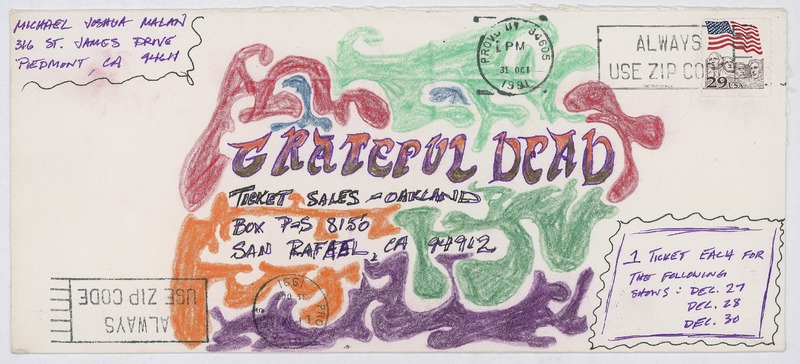 MICHAEL JOSHUA MALAN
316 ST. JAMES DRIVE
PIEDMONT, CA 94611
PROVO UT 84605
1 PM
31 OCT
1991
ALWAYS
USE ZIP CODE
29 USA
GRATEFUL DEAD
TICKET SALES - OAKLAND
BOX P-S 8155
SAN RAFAEL, CA 94912
1 TICKET EACH FOR
THE FOLLOWING
SHOWS: DEC. 27
DEC. 28
DEC. 30
ALWAYS
USE ZIP CODE
1991